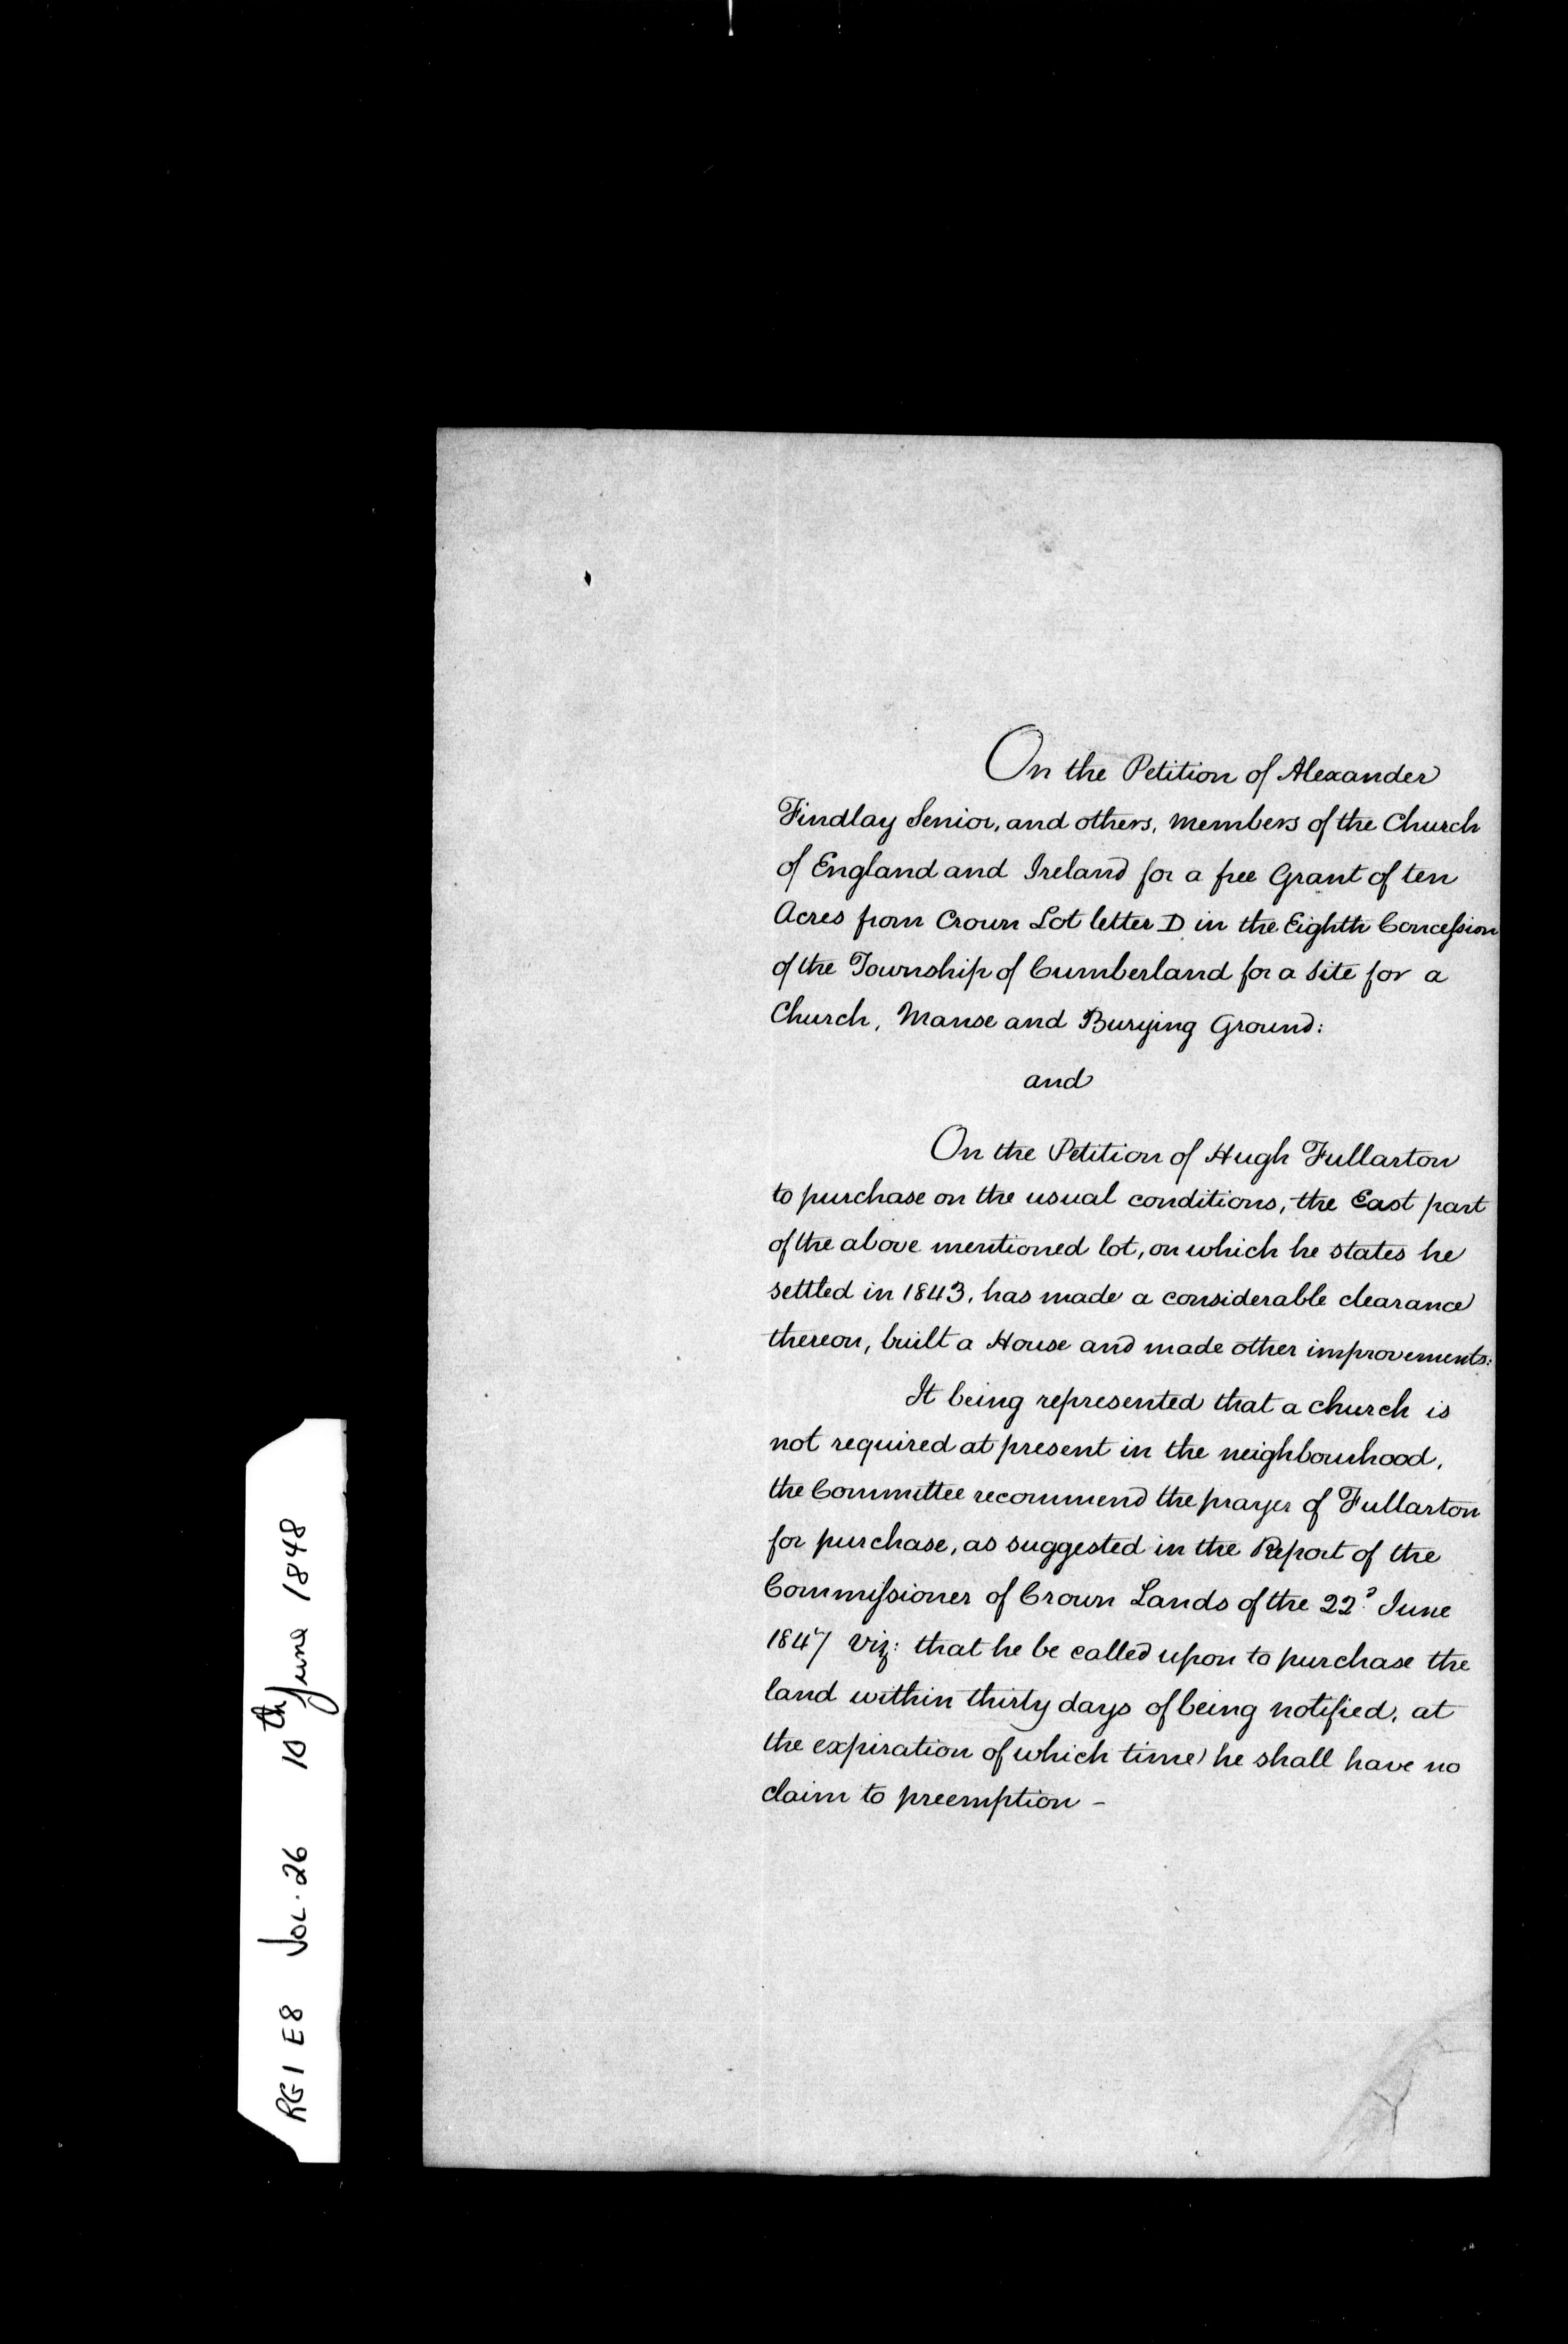 On the Petition of Alexander
Findlay Senior, and others, members of the Church
of England and Ireland for a free Grant of ten
Acres from Crown Lot letter D in the Eighth Concession
of the Township of Cumberland for a site for a
Church, Manse and Burying Ground:
and
On the Petition of Hugh Fullarton
to purchase on the usual conditions, the East part
of the above mentioned lot, on which he states he
settled in 1843, has made a considerable clearance
thereon, built a House and made other improvements:
It being represented that a church is
not required at present in the neighbourhood,
the Committee recommend the prayer of Fullarton
for purchase, as suggested in the Report of the
Commissioner of Crown Lands of the 22d June
1847 viz: that he be called upon to purchase the
land within thirty days of being notified, at
the expiration of which time he shall have no
claim to preemption –
RG1 E8 Vol. 26 10th June 1848